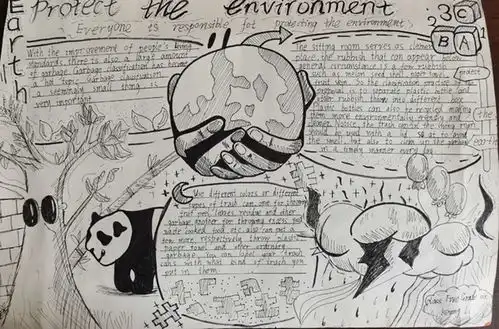 Protect the Environment
Everyone is responsible for protecting the environment.
Earth
With the improvement of people's living
standards, there is also a large amount
of garbage. Garbage classification has become
a hot topic. Garbage classification
is a seemingly small thing is
very important
The sitting room serves as
place, the rubbish that can appear below
general circumstance is a few peel,
such as melon seed shell, paper towel,
is to separate plastic bottle and
other rubbish, throw into different
Plastic bottles can also be recycled, making
them more environmentally friendly and
cleaner. Notice, the trash can in the living room
should be used with a lid, so as to avoid
the smell, but also to clean up the garbage
in a timely manner every day
2
3
C
B
A
protect
Use different colors or different
types of trash can, one for
that peel, leaves, residue and other
garbage, another for throwing excess
can put a
few more, respectively throw plastic,
paper towel and other ordinary
garbage. You can label your trash
cans with what kind of trash you
put in them.